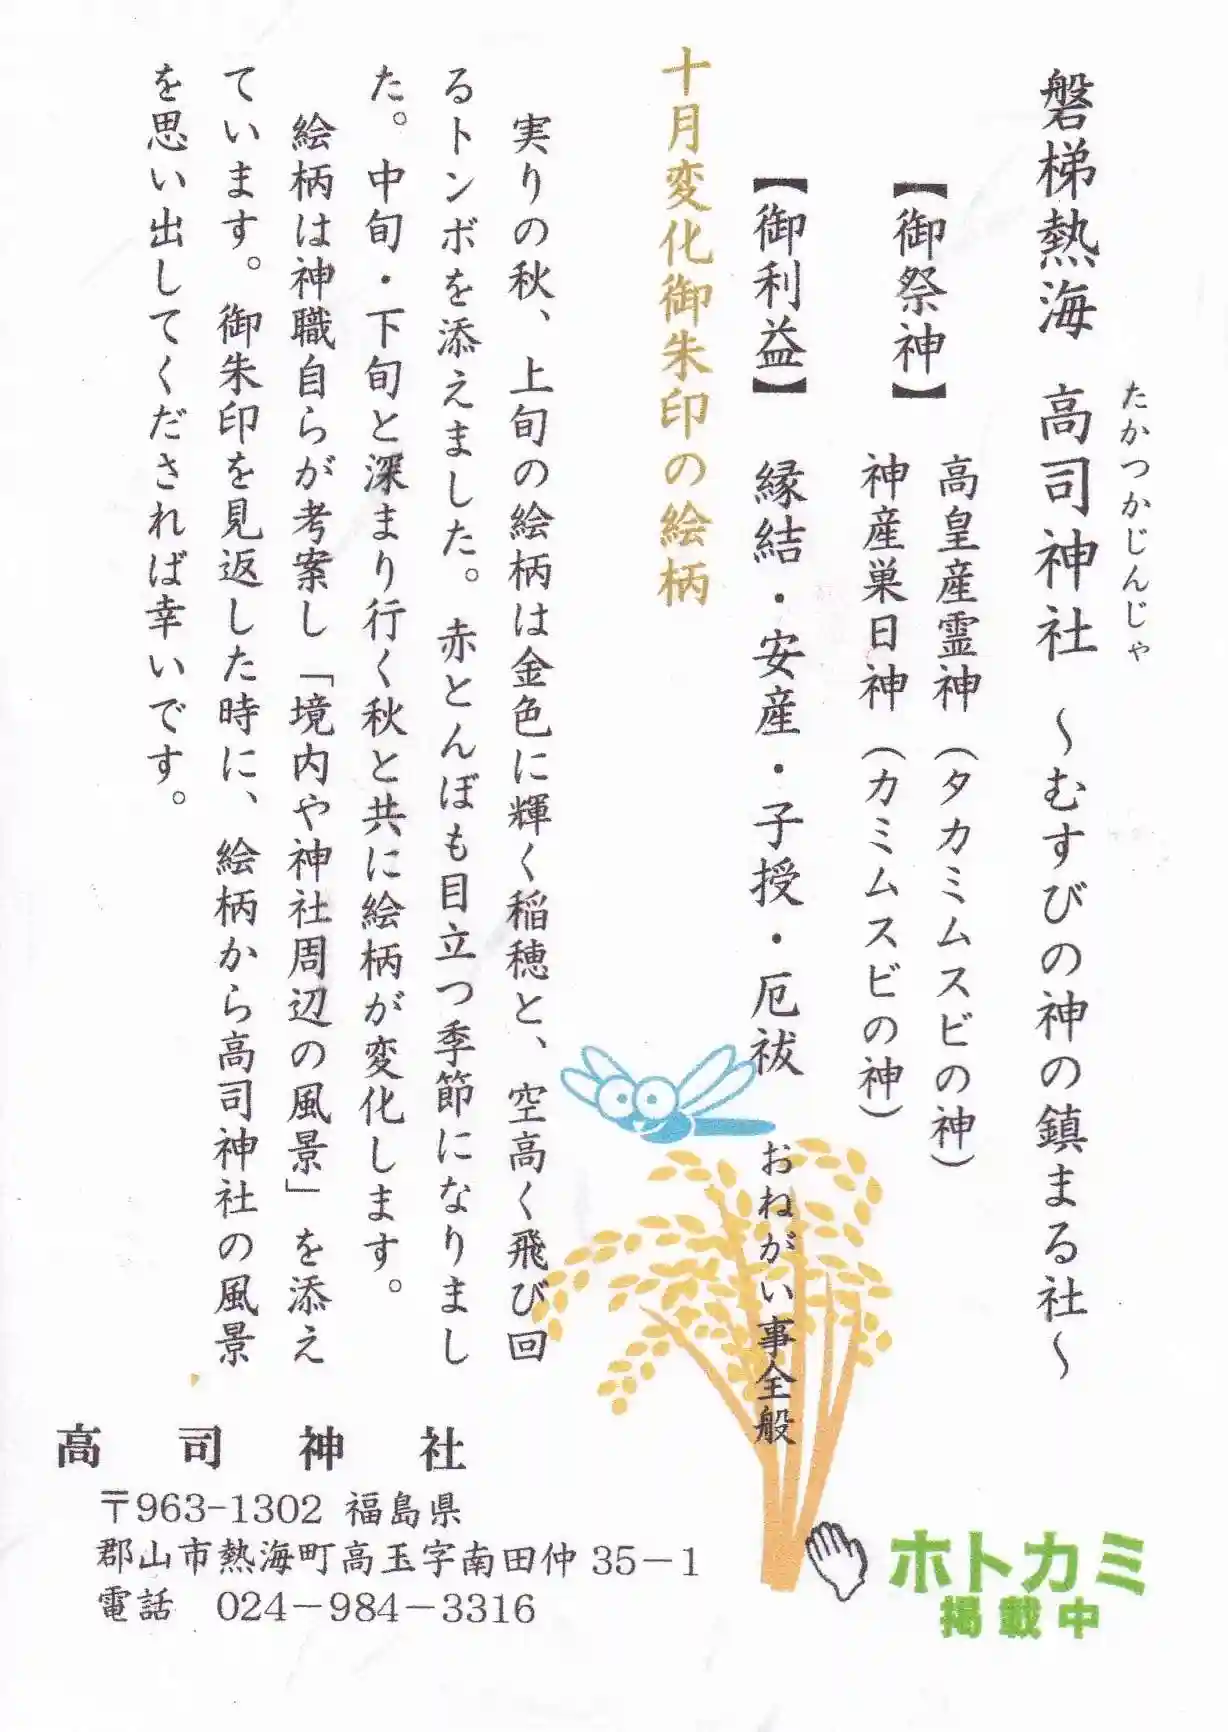 たかつかじんじゃ
磐梯熱海 高司神社 〜むすびの神の鎮まる社〜
【御祭神】 高皇産霊神（タカミムスビの神）
神産巣日神（カミムスビの神）
【御利益】 縁結・安産・子授・厄祓 おねがい事全般
十月変化御朱印の絵柄
実りの秋、上旬の絵柄は金色に輝く稲穂と、空高く飛び回
るトンボを添えました。赤とんぼも目立つ季節になりまし
た。中旬・下旬と深まり行く秋と共に絵柄が変化します。
絵柄は神職自らが考案し「境内や神社周辺の風景」を添え
ています。御朱印を見返した時に、絵柄から高司神社の風景
を思い出してくだされば幸いです。
高司神社
〒963-1302 福島県
郡山市熱海町高玉字南田仲 35－1
電話 024－984－3316
ホトカミ
掲載中